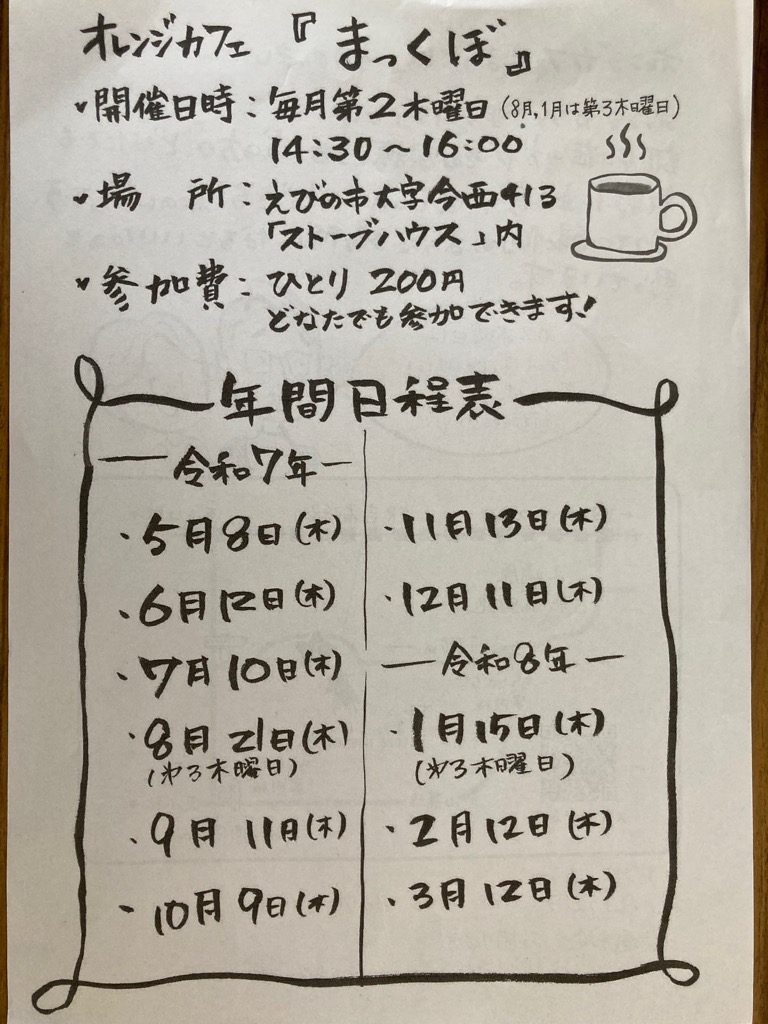 オレンジカフェ 『まっくぼ』
開催日時：毎月第2木曜日（8月,1月は第3木曜日）
14:30〜16:00
場 所：えびの市大字今西413
「ストーブハウス」内
参加費：ひとり 200円
どなたでも参加できます！
年間日程表
令和7年
・5月8日(木)
・6月12日(木)
・7月10日(木)
・8月21日(木)
(第3木曜日)
・9月11日(木)
・10月9日(木)
・11月13日(木)
・12月11日(木)
令和8年
・1月15日(木)
(第3木曜日)
・2月12日(木)
・3月12日(木)